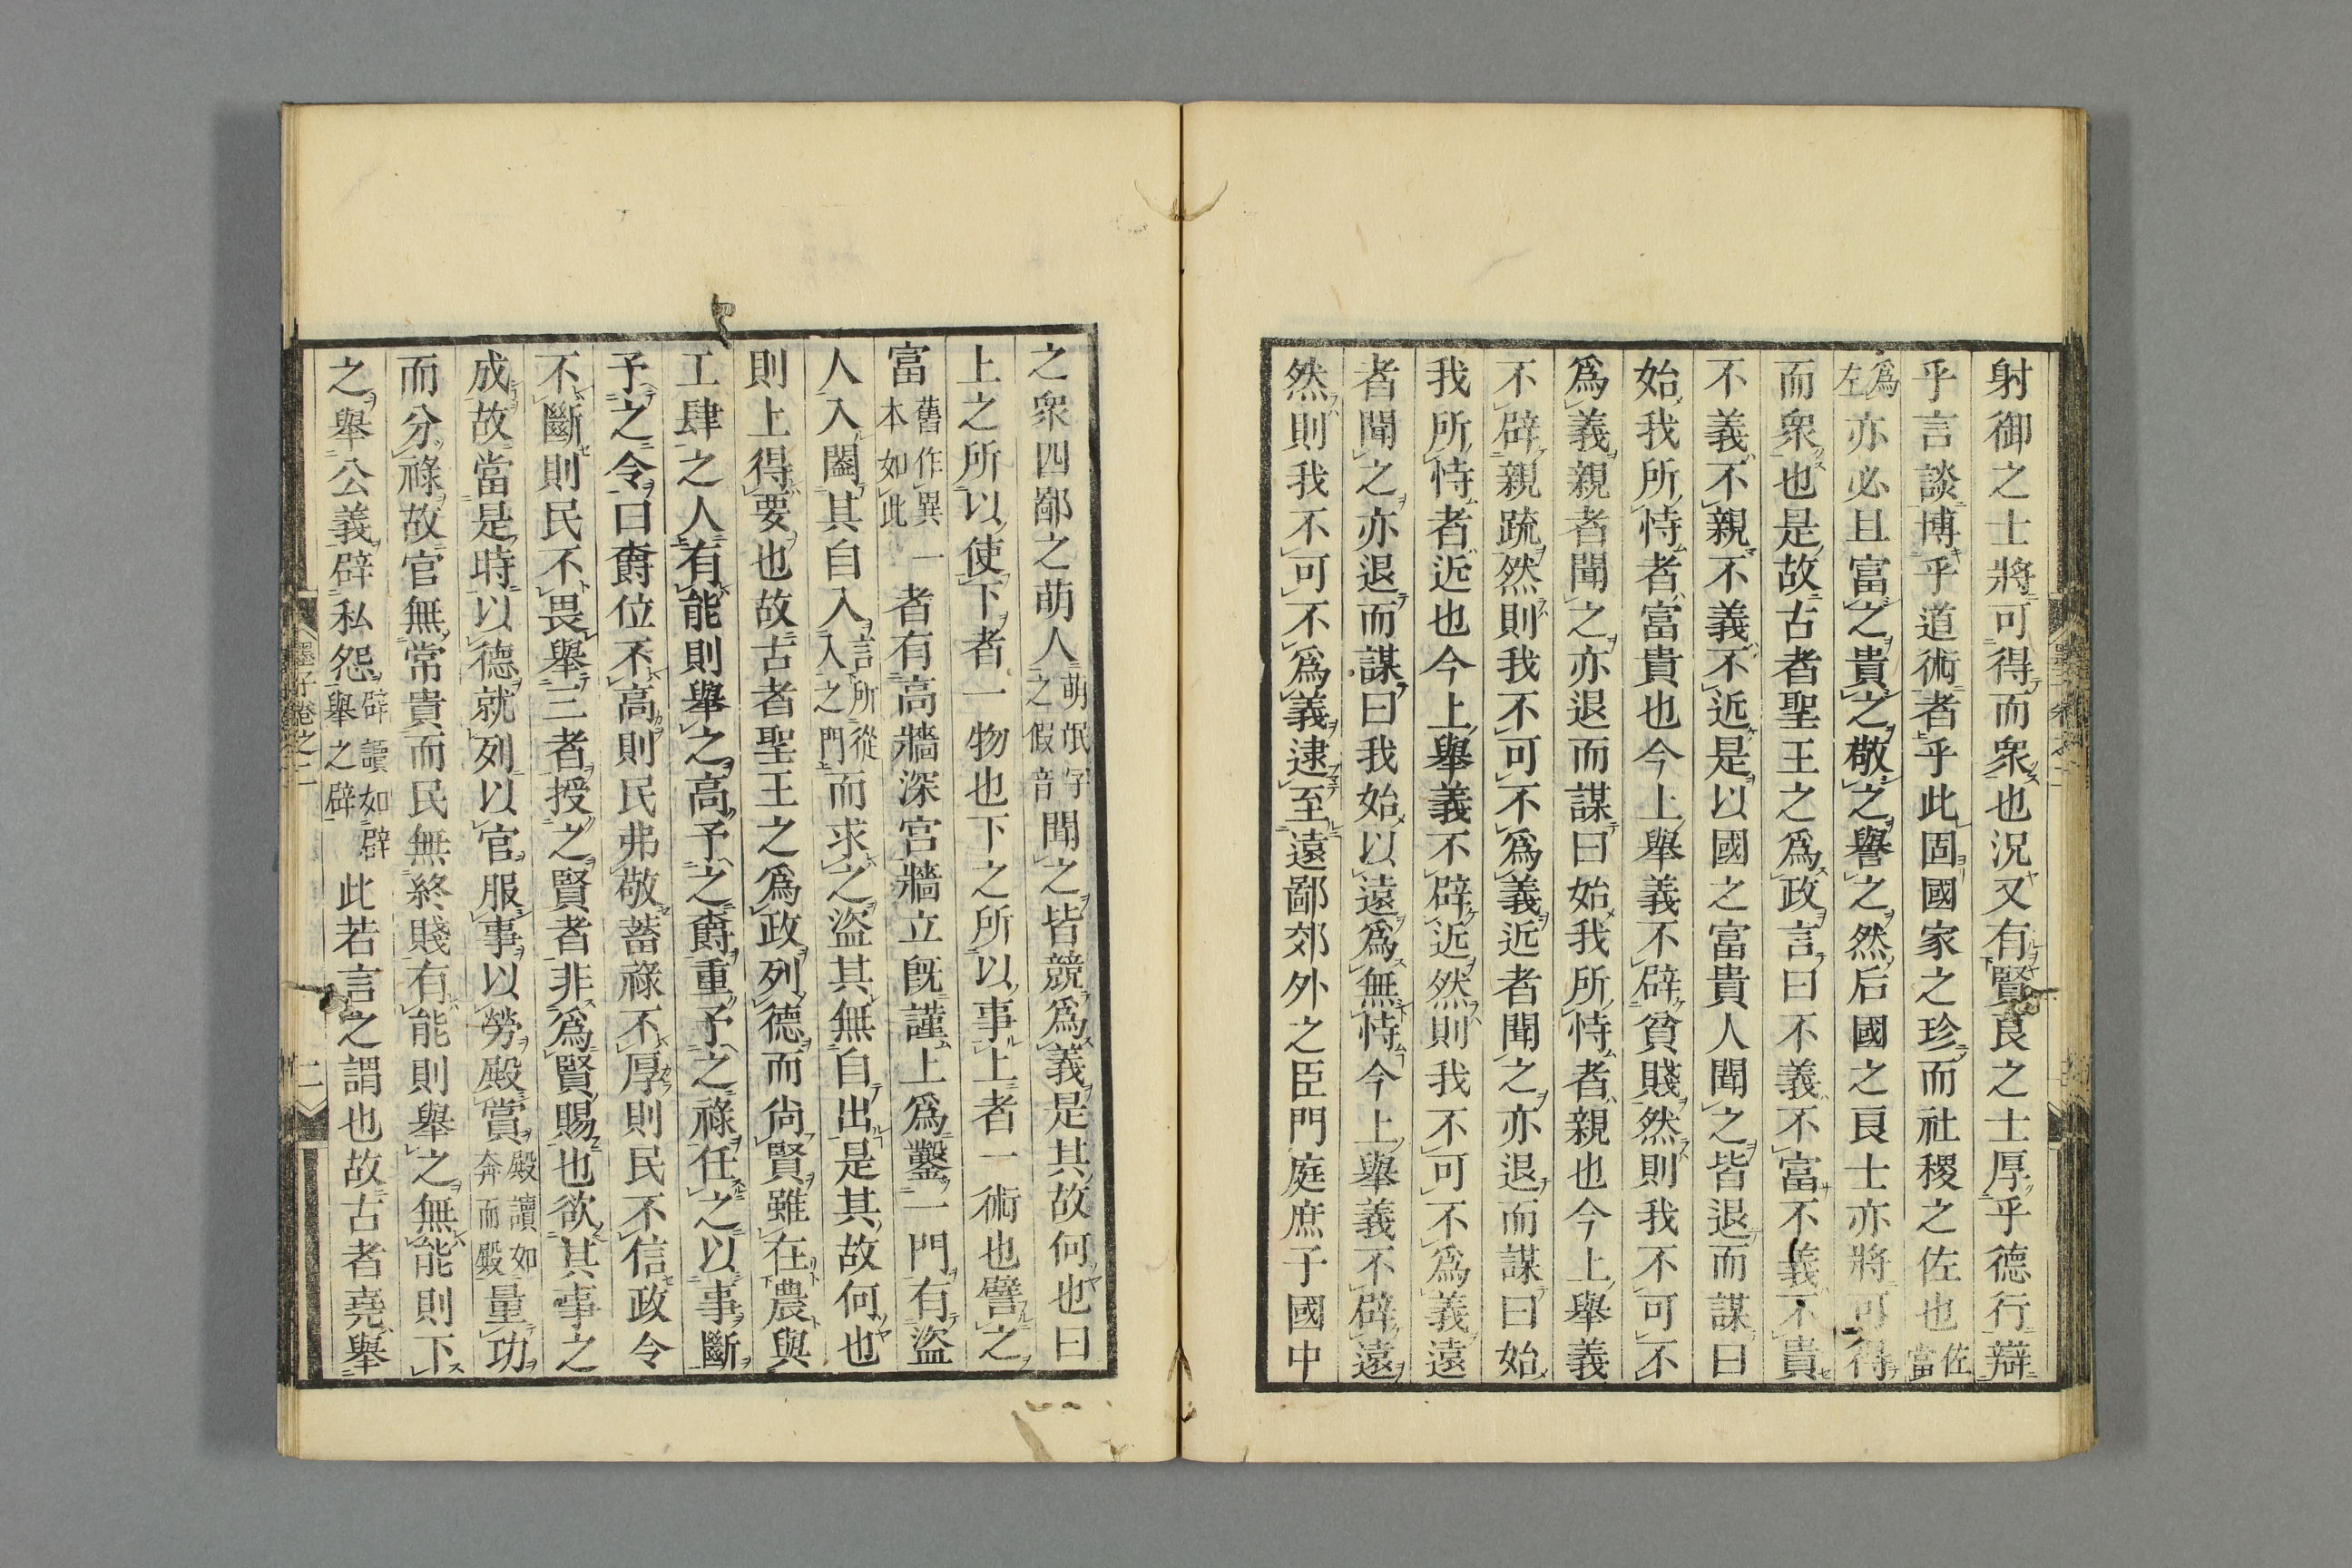 射御之士將可得而衆也況又有賢良之士厚乎德行辯
乎言談博乎道術者乎此固國家之珍而社稷之佐也佐當
爲左亦必且富之貴之敬之譽之然后國之良士亦將可得
而衆也是故古者聖王之爲政言曰不義不富不義不貴
不義不親不義不近是以國之富貴人聞之皆退而謀曰
始我所恃者富貴也今上舉義不辟貧賤然則我不可不
爲義親者聞之亦退而謀曰始我所恃者親也今上舉義
不辟親疏然則我不可不爲義近者聞之亦退而謀曰始
我所恃者近也今上舉義不辟近然則我不可不爲義遠
者聞之亦退而謀曰我始以遠爲無恃今上舉義不辟遠
然則我不可不爲義逮至遠鄙郊外之臣門庭庶子國中
之衆四鄙之萌人萌氓字之假音聞之皆競爲義是其故何也曰
上之所以使下者一物也下之所以事上者一術也譬之
富舊作異本如此一者有高牆深宮牆立旣謹上爲鑿一門有盜
人入闔其自入言所從入之門而求之盜其無自出是其故何也
則上得要也故古者聖王之爲政列德而尙賢雖在農與
工肆之人有能則舉之高予之爵重予之祿任之以事斷
予之令曰爵位不高則民弗敬蓄祿不厚則民不信政令
不斷則民不畏舉三者授之賢者非爲賢賜也欲其事之
成故當是時以德就列以官服事以勞殿賞殿讀如奔而殿量功
而分祿故官無常貴而民無終賤有能則舉之無能則下
之舉公義辟私怨辟讀如辟舉之辟此若言之謂也故古者堯舉
墨子卷之二
二